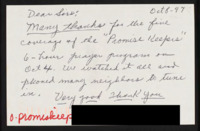 Dear Sirs: Oct 8-97
Many thanks for the fine
coverage of the "Promise Keepers"
6-hour prayer program on
Oct 4. We watched it all and
phoned many neighbors to tune
in. Very good Thank You
0-promiskeep